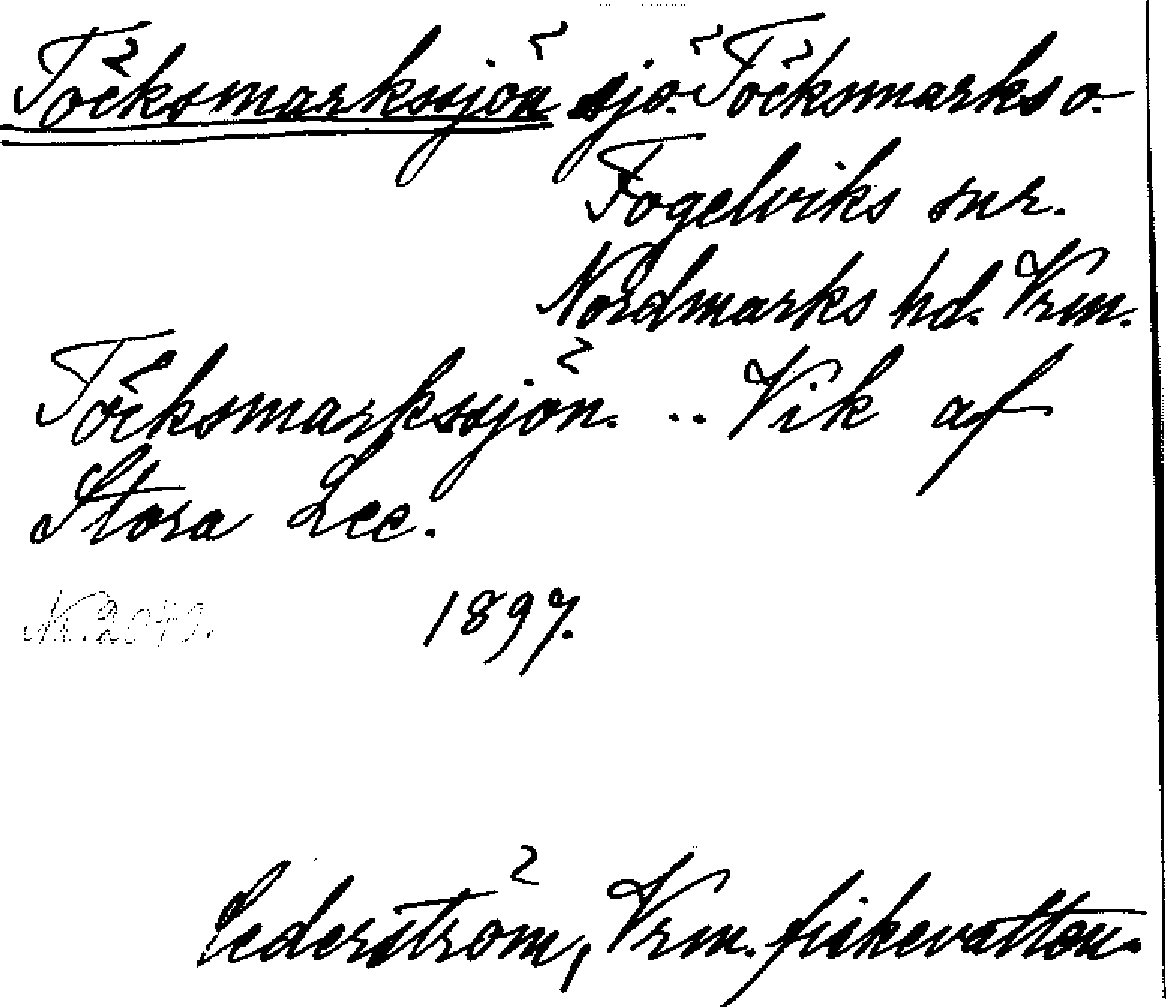 Töcksmarkssjön sjö. Töcksmarks o.
Fogelviks snr.
Nordmarks hd. Vrm.
Töcksmarkssjön. .. Vik af
Stora Lee.
Nr. 2049. 1897.
Cederström, Vrm. fiskevatten.